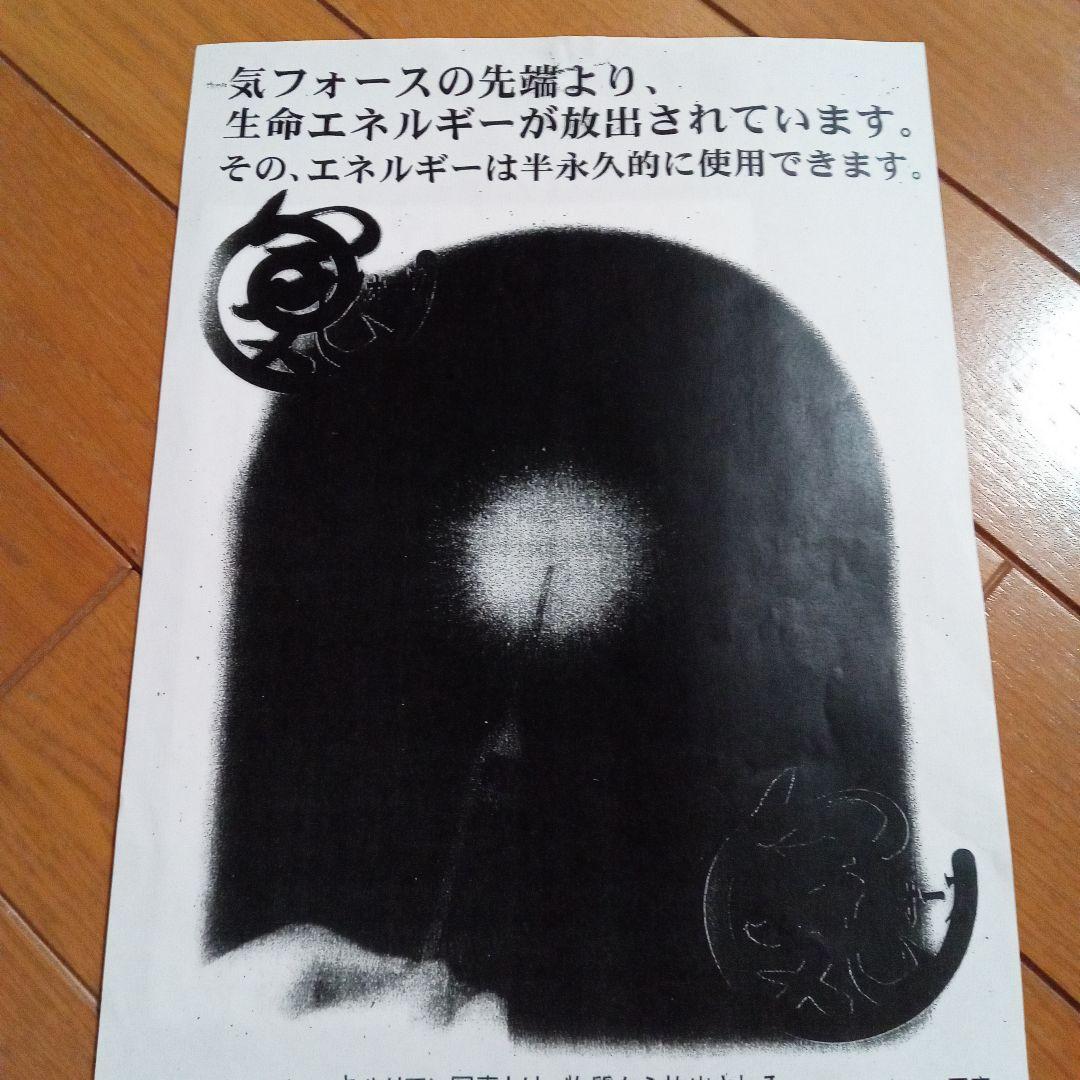 気フォースの先端より、
生命エネルギーが放出されています。
その、エネルギーは半永久的に使用できます。